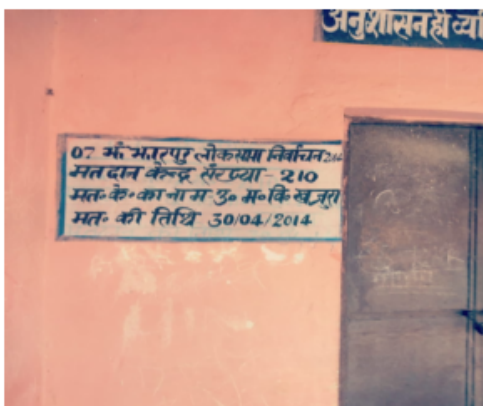 अनुशासन ही
07 लोकसभा निर्वाचन
मतदान केन्द्र संख्या - 210
मत. के. का नाम उ. म. वि. खजुरा
मत. की तिथि 30/04/2014